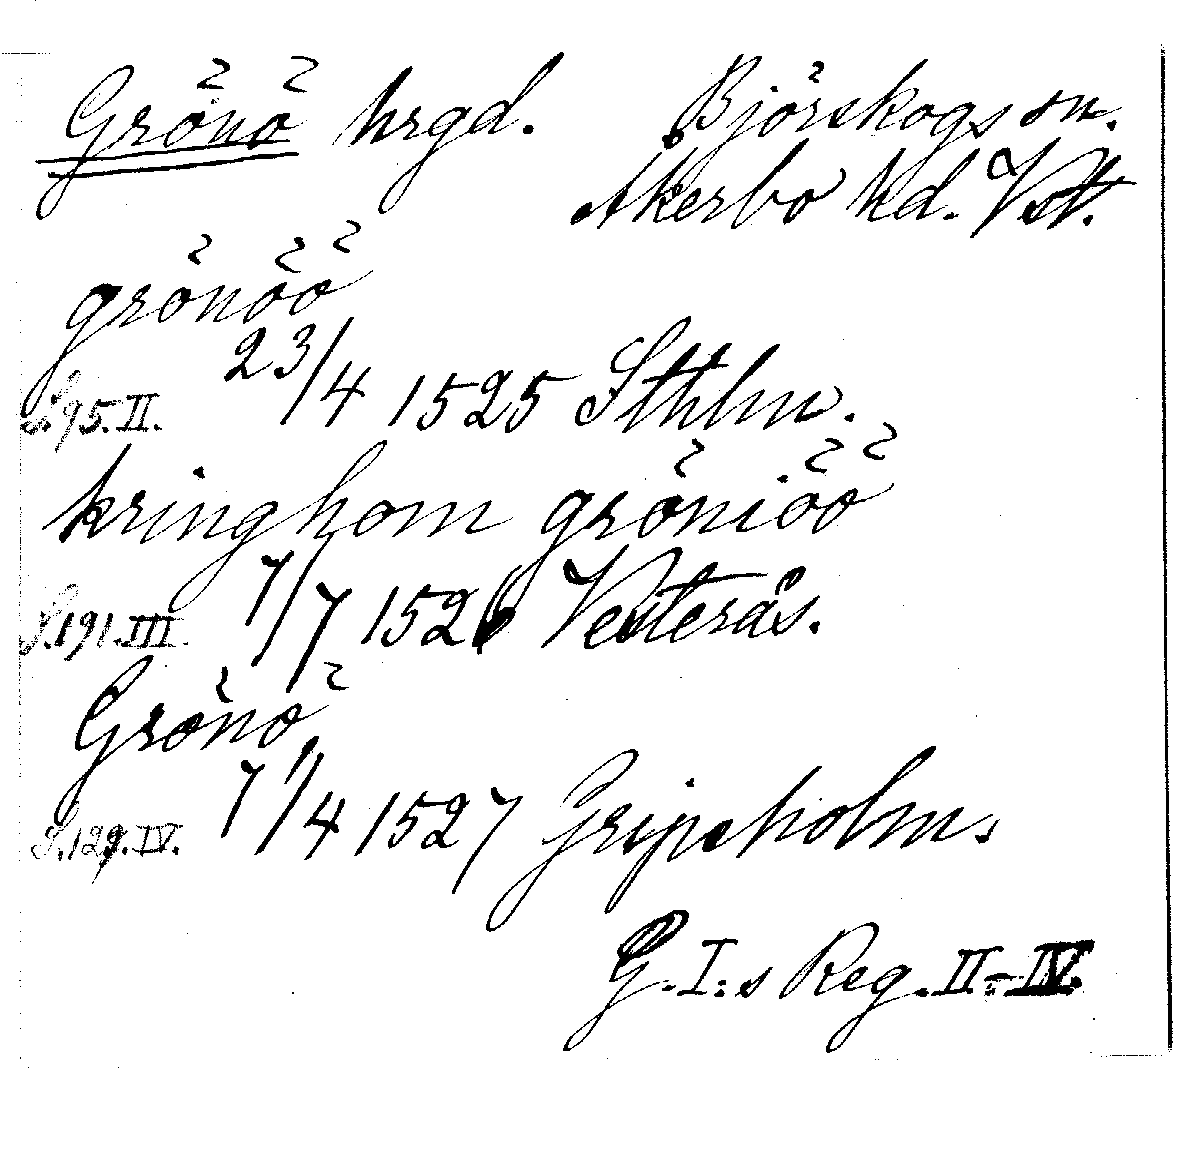 Grönö hrgd. Björskogs sn.
Åkerbo hd. Vstl.
grönöö
S. 95. II. 23/4 1525 Sthlm.
kringhom gröniöö
S. 191. III. 7/7 1526 Vesterås.
Grönö
S. 129. IV. 7/4 1527 Gripsholm.
G. I:s Reg. II-IV.